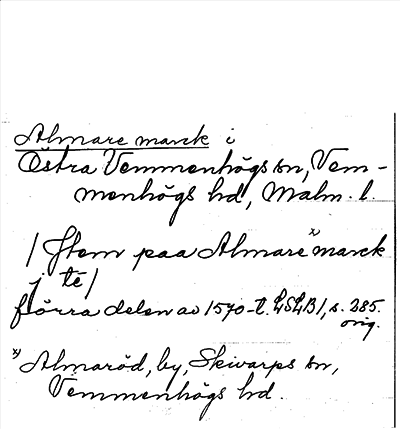 Almare marck i
Östra Vemmenhögs sn, Vem-
menhögs hd, Malm. l.
/ Jtem paa Almare x) marck
j te /
förra delen av 1570-t. LSLB 1, s. 285.
orig.
x) Almaröd, by, Skivarps sn,
Vemmenhögs hd.